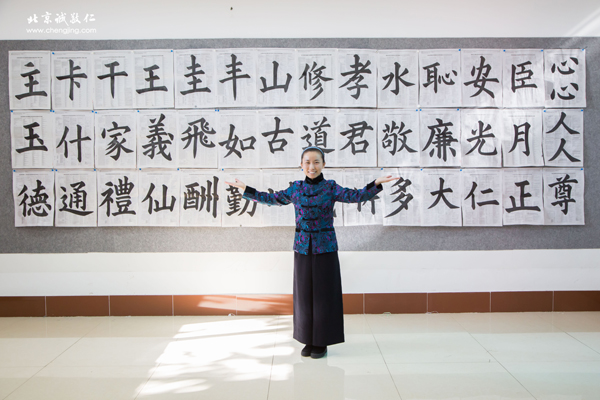 北京诚敬仁
www.chengjing.com
主卡千王圭丰山修孝水恥安臣心心
玉什家義飛如古道君敬廉光月人人
德通禮仙酬勤多大仁正尊